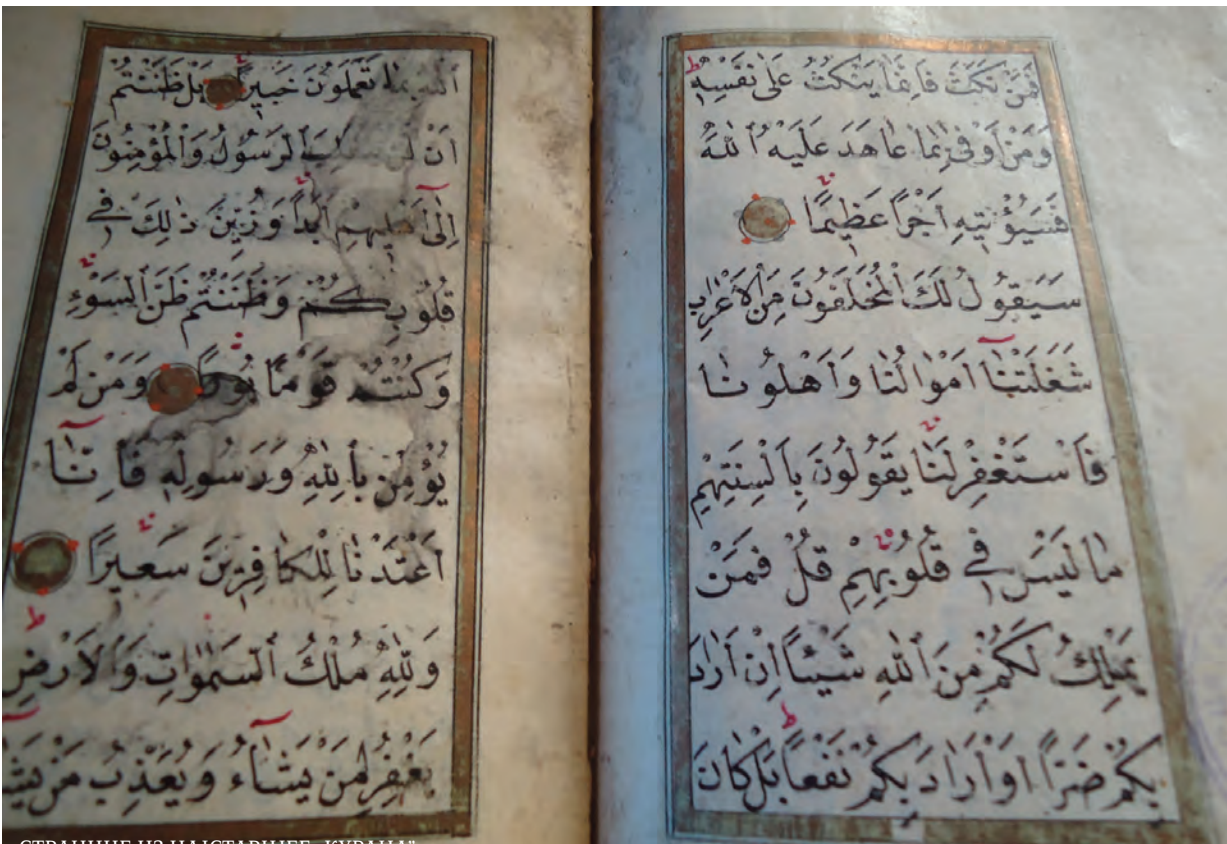 فَمَنْ نَكَثَ فَاِنَّمَا يَنْكُثُ عَلٰى نَفْسِهٖ ط
وَمَنْ اَوْفٰى بِمَا عَاهَدَ عَلَيْهُ اللّٰهَ
فَسَيُؤْتِيهِ اَجْرًا عَظِيمًا
سَيَقُولُ لَكَ الْمُخَلَّفُونَ مِنَ الْاَعْرَابِ
شَغَلَتْنَٓا اَمْوَالُنَا وَاَهْلُونَا
فَاسْتَغْفِرْ لَنَا يَقُولُونَ بِاَلْسِنَتِهِمْ
مَا لَيْسَ فِى قُلُوبِهِمْ قُلْ فَمَنْ
يَمْلِكُ لَكُمْ مِنَ اللّٰهِ شَيْئًا اِنْ اَرَادَ
بِكُمْ ضَرًّا اَوْ اَرَادَ بِكُمْ نَفْعًا ط بَلْ كَانَ
اللّٰهُ بِمَا تَعْمَلُونَ خَبِيرًا بَلْ ظَنَنْتُمْ
اَنْ الرَّسُولُ وَالْمُؤْمِنُونَ
اِلٰٓى اَهْلِيهِمْ اَبَدًا وَزُيِّنَ ذٰلِكَ فِى
قُلُوبِكُمْ وَظَنَنْتُمْ ظَنَّ السَّوْءِ
وَكُنْتُمْ قَوْمًا بُورًا وَمَنْ لَمْ
يُؤْمِنْ بِاللّٰهِ وَرَسُولِهٖ فَاِنَّٓا
اَعْتَدْنَا لِلْكَافِرِينَ سَعِيرًا
وَلِلّٰهِ مُلْكُ السَّمٰوَاتِ وَالْاَرْضِ ط
يَغْفِرُ لِمَنْ يَشَٓاءُ وَيُعَذِّبُ مَنْ
СТРАНИЦЕ ИЗ НАЈСТАРИЈЕГ „КУРАНА“